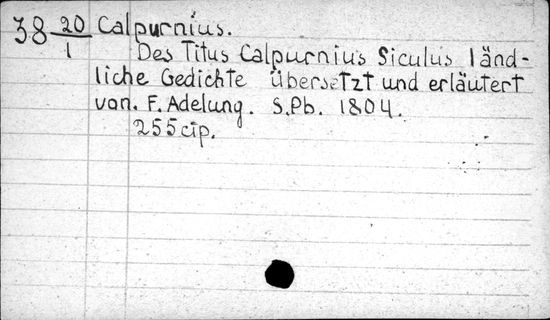 38 20/1 Calpurnius.
Des Titus Calpurnius Siculus länd-
liche Gedichte übersetzt und erläutert
von. F. Adelung. S.Pb. 1804.
255 стр.